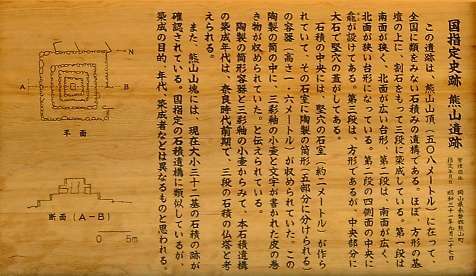 国指定史跡 熊山遺跡
管理団体 岡山県赤磐郡熊山町
指定年月日 昭和三十一年九月二十七日
この遺跡は、熊山山頂（五〇八メートル）に在って、
全国に類をみない石積みの遺構である。ほぼ、方形の基
壇の上に、割石をもって三段に築成している。第一段は
南面が狭く、北面が広い台形、第二段は、南面が広く、
北面が狭い台形になっている。第二段の四側面の中央に
龕が設けてある。第三段は、方形であるが、中央部分に
大石で竪穴の蓋がしてある。
石積の中央には、竪穴の石室（約二メートル）が作ら
れていて、その石室に陶製の筒形（五部分に分けられる）
の容器（高さ一・六メートル）が収められていた。この
陶製の筒の中に、三彩釉の小壺と文字が書かれた皮の巻
き物が収められていた。と伝えられている。
陶製の筒形容器と三彩釉の小壺からみて、本石積遺構
の築成年代は、奈良時代前期で、三段の石積の仏塔と考
えられる。
また、熊山山塊には、現在大小三十二基の石積の跡が
確認されている。国指定の石積遺構に類似しているが、
築成の目的、年代、築成者などは異なるものと思われる。
N
A
B
平面
断面（A－B）
0 5m